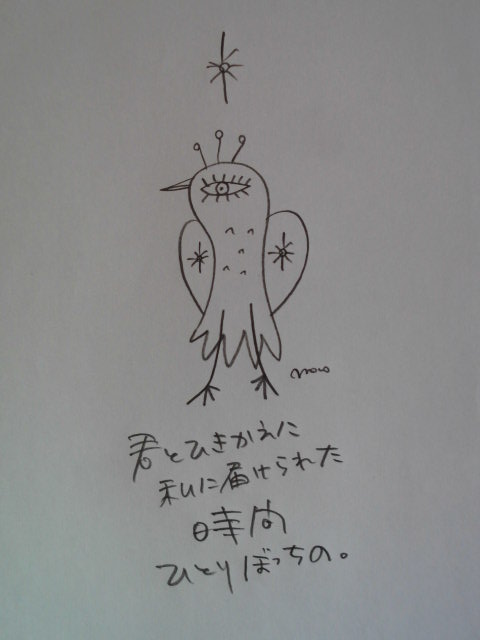 君とひきかえに
私に届けられた
時間
ひとりぼっちの。